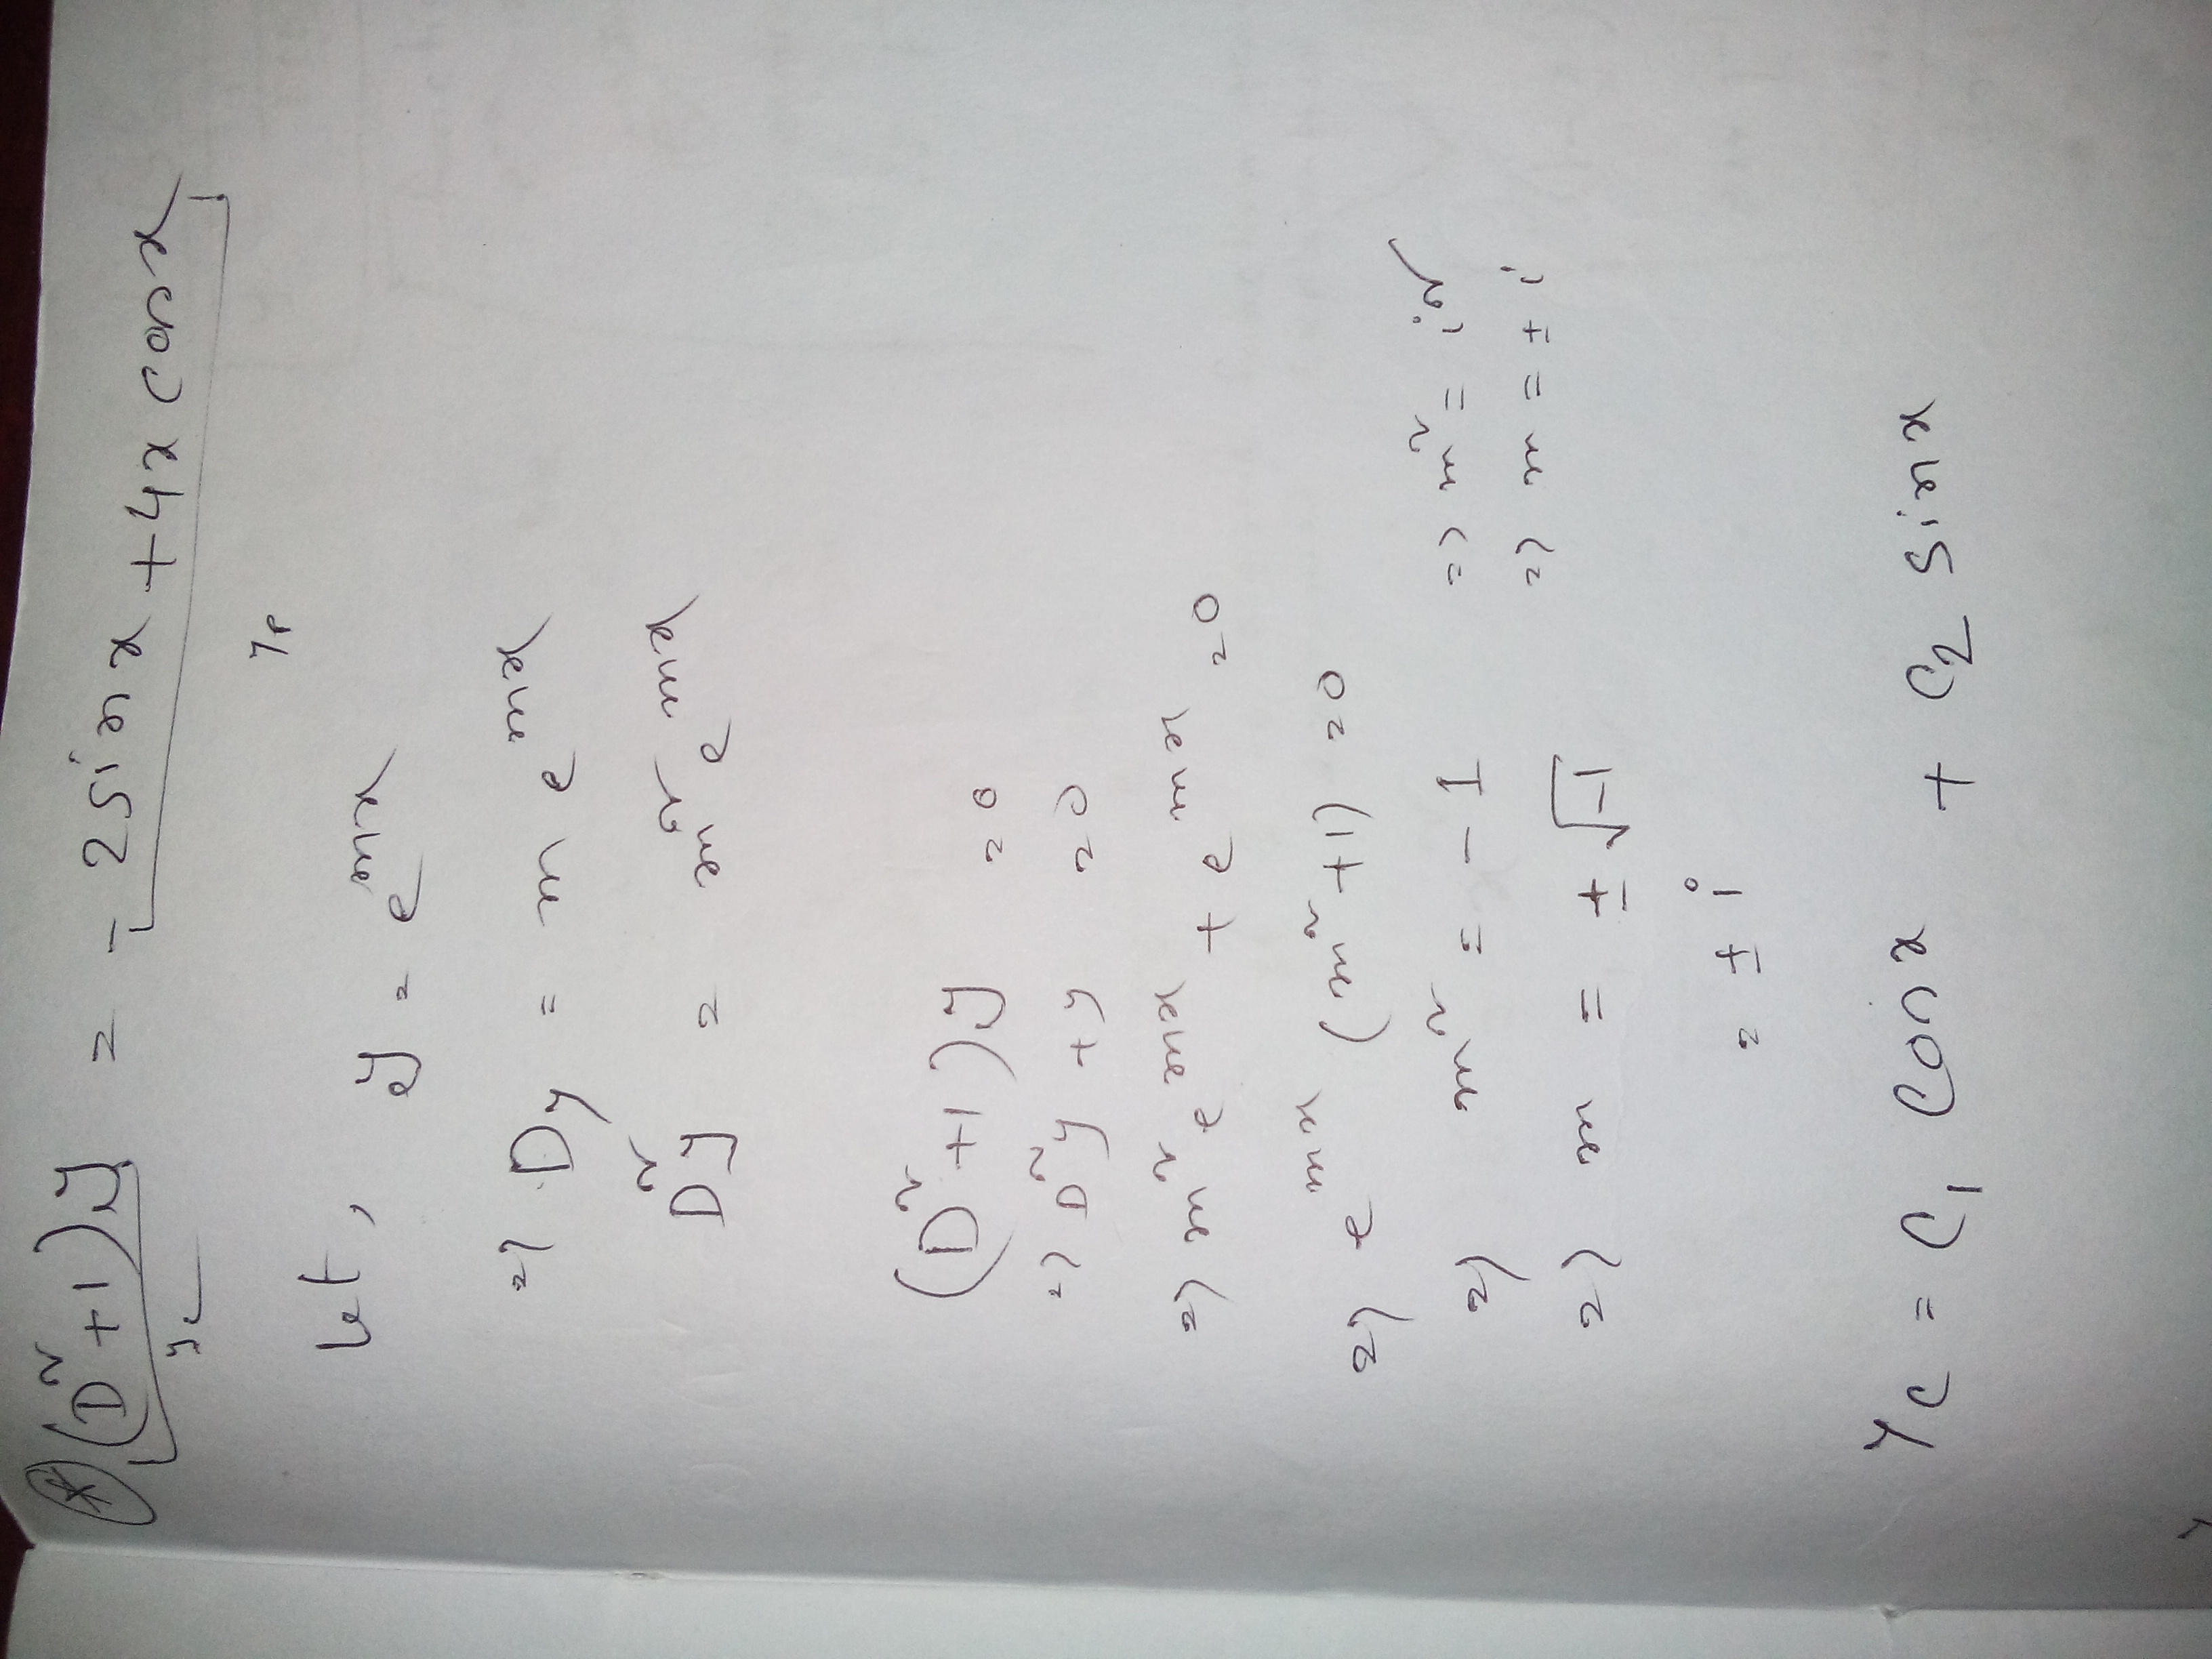 * (D² + 1)y = - 2 sin x + 4x cos x
yc
yp
Let, y = e^mx
=> Dy = m e^mx
D²y = m² e^mx
(D² + 1)y = 0
=> D²y + y = 0
=> m² e^mx + e^mx = 0
=> e^mx (m² + 1) = 0
=> m² = - 1 => m² = i²
=> m = ± √-1 => m = ± i
= ± i
yc = C₁ cos x + C₂ sin x